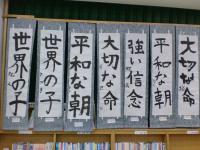 大切な命
平和な朝
強い信念
大切な命
平和な朝
世界の子
世界の子